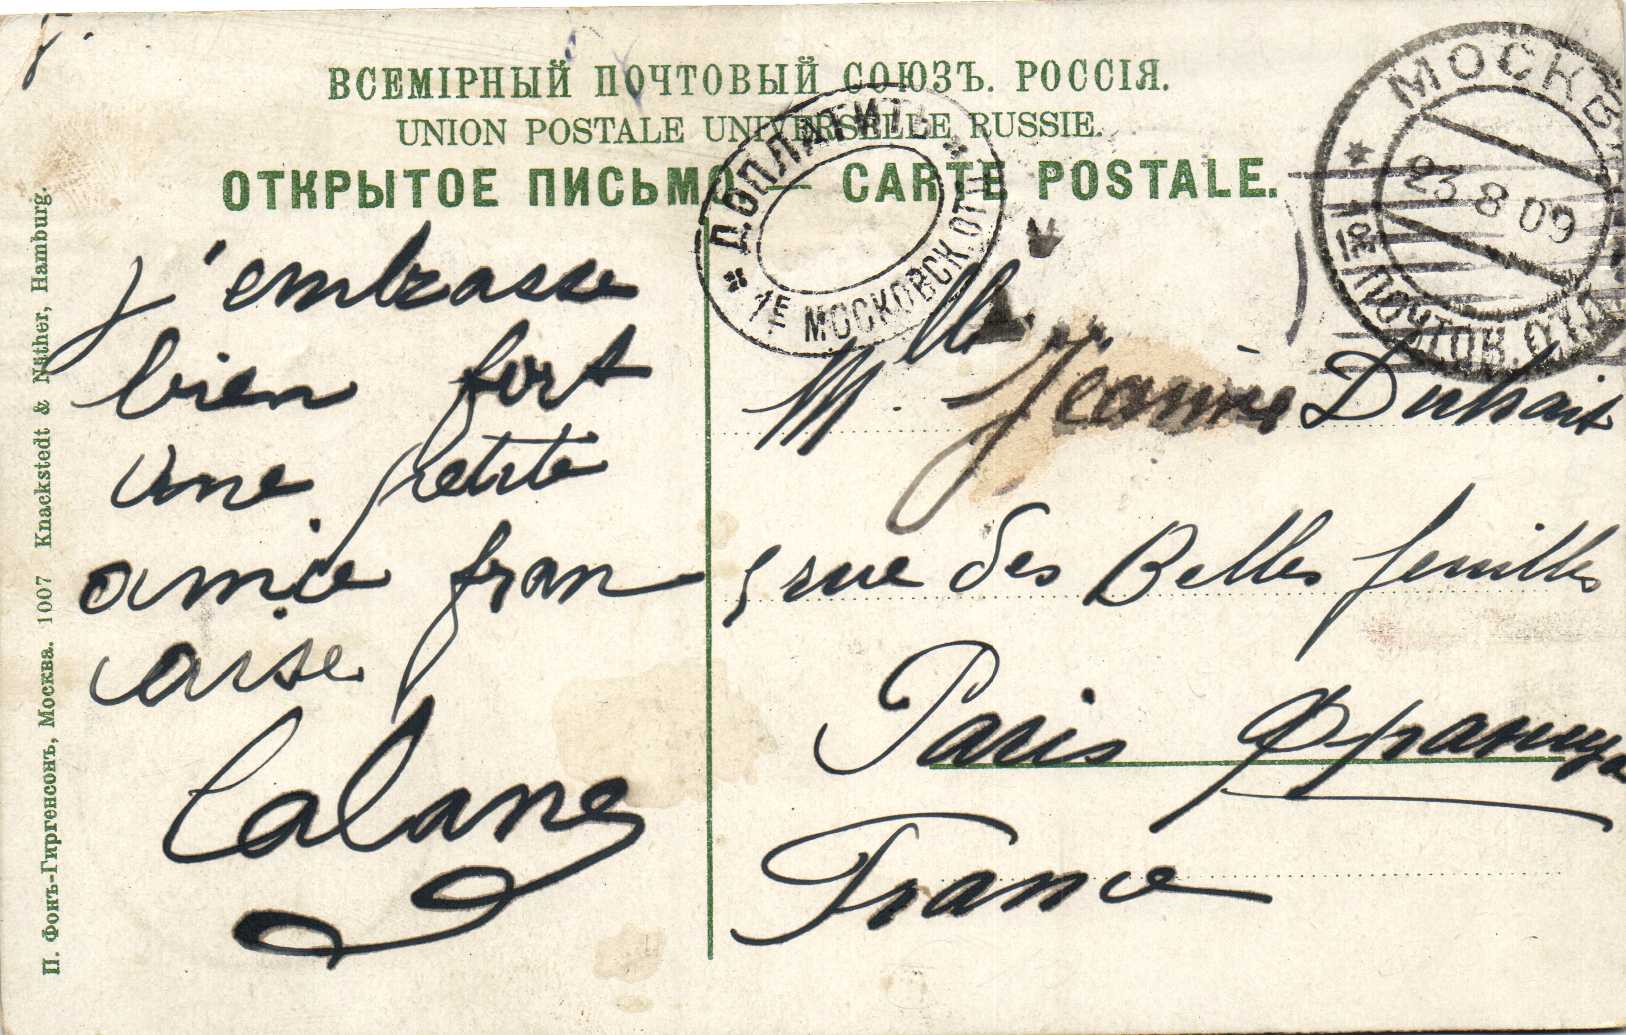 ВСЕМІРНЫЙ ПОЧТОВЫЙ СОЮЗЪ. РОССІЯ.
UNION POSTALE UNIVERSELLE. RUSSIE.
ОТКРЫТОЕ ПИСЬМО — CARTE POSTALE.
МОСКВА
23 8 09
1ОЕ ПОЧТОВ. ОТД.
ДОПЛАТИТЬ
1Е МОСКОВСК. ОТ
j'embrasse
bien fort
une petite
amie fran
caise
Lalane
Mlle Jeanne Duhait
5 rue des Belles feuilles
Paris Франция
France
П. Фонъ-Гиргенсонъ, Москва. 1007 Knackstedt & Näther, Hamburg.